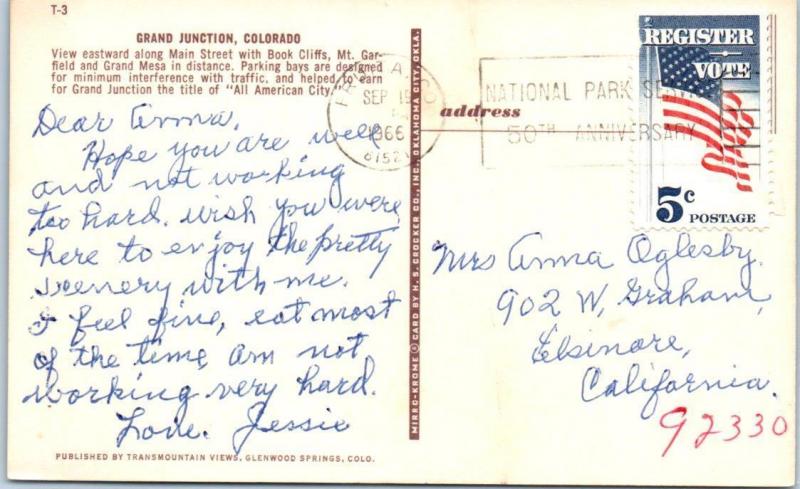 T-3
GRAND JUNCTION, COLORADO
View eastward along Main Street with Book Cliffs, Mt. Gar-
field and Grand Mesa in distance. Parking bays are designed
for minimum interference with traffic, and helped to earn
for Grand Junction the title of "All American City."
Dear Anna,
Hope you are well
and not working
too hard. wish you were
here to enjoy the pretty
scenery with me.
I feel fine, eat most
of the time, am not
working very hard.
Love. Jessie
PUBLISHED BY TRANSMOUNTAIN VIEWS, GLENWOOD SPRINGS, COLO.
MIRRO-KROME ® CARD BY H. S. CROCKER CO., INC., OKLAHOMA CITY, OKLA.
address
SEP
1966
NATIONAL PARK SERVICE
50TH ANNIVERSARY
REGISTER
VOTE
5c
POSTAGE
Mrs Anna Oglesby.
902 W, Graham,
Elsinore,
California.
92330